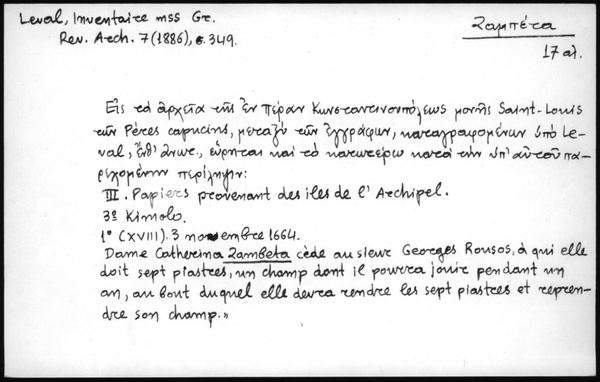 Leval, Inventaire mss Gr.
Rev. Arch. 7 (1886), σ. 349.
Ζαμπέτα
17 αἰ.
Εἰς τὰ ἀρχεῖα τῆς ἐν Πέραν Κωνσταντινουπόλεως μονῆς Saint-Louis
τῶν Pères capucins, μεταξὺ τῶν ἐγγράφων, καταγραφομένων ὑπὸ Le-
val, ἔνθ' ἀνωτ., εὕρηται καὶ τὸ κατωτέρω κατὰ τὴν ὑπ' αὐτοῦ πα-
ρεχομένην περίληψιν:
III. Papiers provenant des iles de l'Archipel.
3º Kimolo.
1º (XVIII). 3 novembre 1664.
Dame Catherina Zambeta cède au sieur Georges Rousos, à qui elle
doit sept piastres, un champ dont il pourra jouir pendant un
an, au bout duquel elle devra rendre les sept piastres et repren-
dre son champ.»